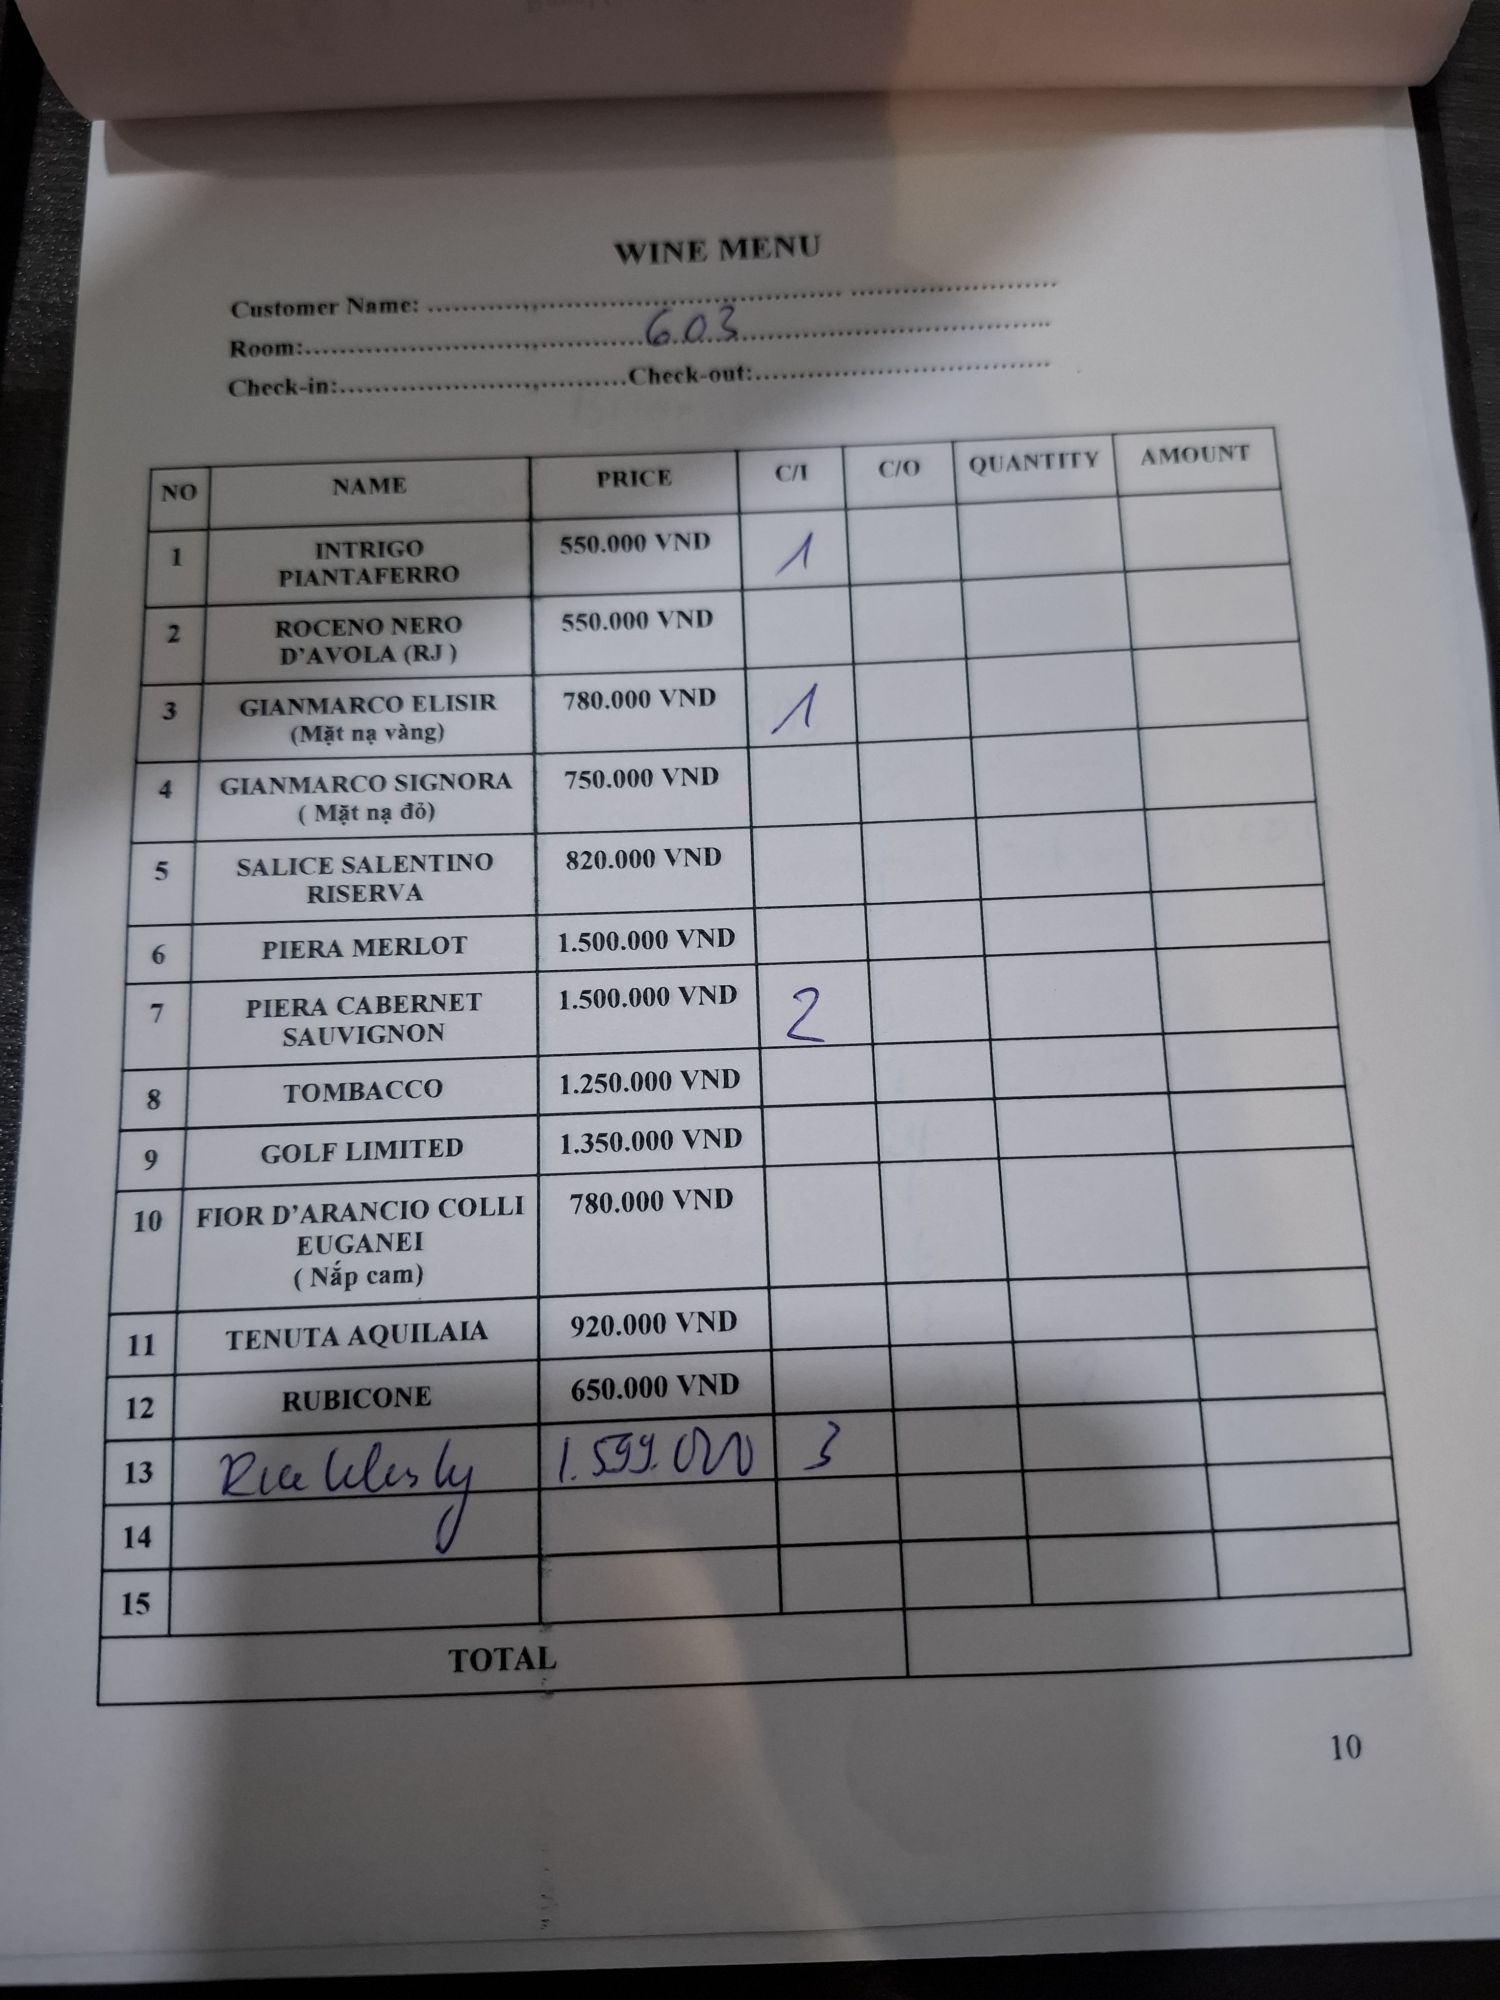 WINE MENU
Customer Name: ........................................................................
Room:........................603................................
Check-in:................................Check-out:................................
NO NAME PRICE C/I C/O QUANTITY AMOUNT
1 INTRIGO 550.000 VND 1
PIANTAFERRO
2 ROCENO NERO 550.000 VND
D'AVOLA (RJ )
3 GIANMARCO ELISIR 780.000 VND 1
(Mặt nạ vàng)
4 GIANMARCO SIGNORA 750.000 VND
( Mặt nạ đỏ)
5 SALICE SALENTINO 820.000 VND
RISERVA
6 PIERA MERLOT 1.500.000 VND
7 PIERA CABERNET 1.500.000 VND 2
SAUVIGNON
8 TOMBACCO 1.250.000 VND
9 GOLF LIMITED 1.350.000 VND
10 FIOR D'ARANCIO COLLI 780.000 VND
EUGANEI
( Nắp cam)
11 TENUTA AQUILAIA 920.000 VND
12 RUBICONE 650.000 VND
13 1.599.000 3
14
15
TOTAL
10